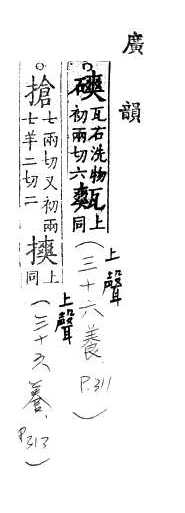 廣韻
○磢瓦石洗物初兩切六㼽上同
上聲
(三十六養 P.311)
○搶七兩切又初兩七羊二切二摤上同
上聲
(三十六養 P.313)